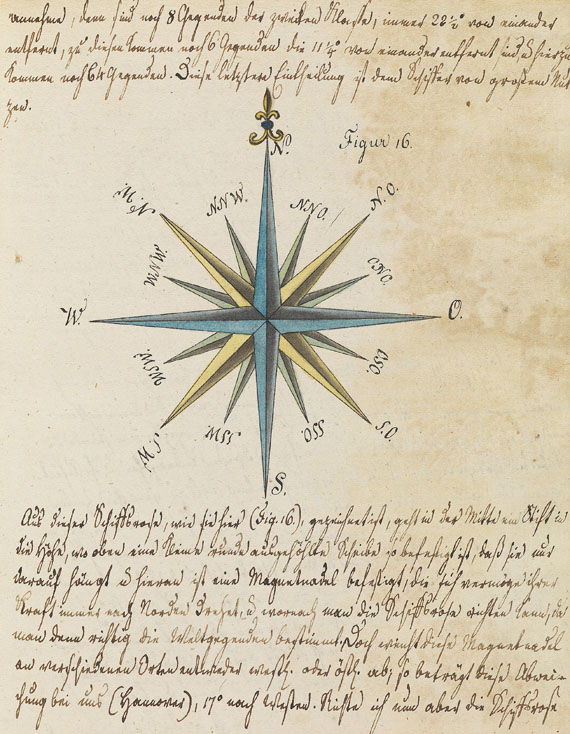 annehme, dann sind noch 8 Gegenden der zweiten Klasse, immer 22½° von einander
entfernt, zu diesen kommen noch 16 Gegenden die 11¼° von einander entfernt sind, u hierzu
kommen noch 64 Gegenden. Diese letztere Eintheilung ist dem Schiffer von großem Nut-
zen.
N.
Figur 16.
N.W.
NNW.
NNO.
N.O.
WNW.
ONO.
W.
O.
WSW.
OSO.
S.W.
SSW.
SSO.
S.O.
S.
Aus dieser Schiffsrose, wie sie hier (Fig. 16.), gezeichnet ist, geht in der Mitte ein Stift in
die Höhe, wo oben eine kleine runde ausgehöhlte Scheibe so befestigt ist, daß sie nur
darauf hängt u hieran ist eine Magnetnadel befestigt, die sich vermöge ihrer
Kraft immer nach Norden drehet, u wornach man die Schiffsrose richten kann, da
man denn richtig die Weltgegenden bestimmt. Doch weicht diese Magnetnadel
an verschiedenen Orten entweder westl. oder östl. ab; so beträgt diese Abwei-
chung bei uns (Hannover), 17° nach Westen. Richte ich nun aber die Schiffsrose